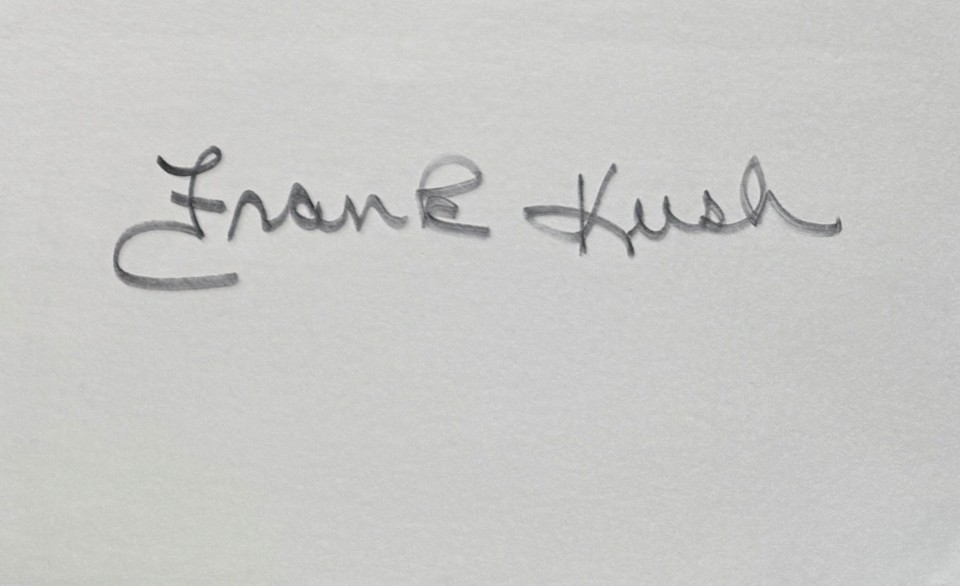 Frank Kush